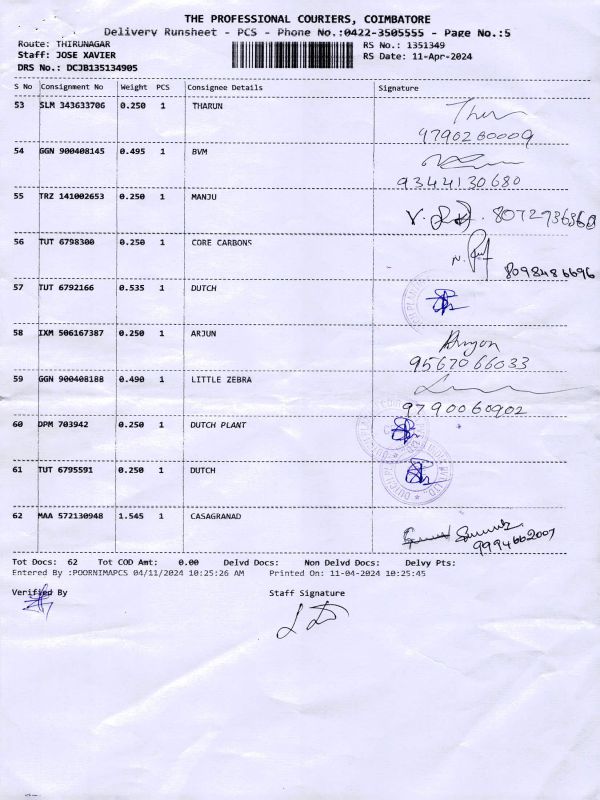 THE PROFESSIONAL COURIERS, COIMBATORE
Delivery Runsheet - PCS - Phone No.:0422-3505555 - Page No.:5
Route: THIRUNAGAR RS No.: 1351349
Staff: JOSE XAVIER RS Date: 11-Apr-2024
DRS No.: DCJB135134905
S No Consignment No Weight PCS Consignee Details Signature
53 SLM 343633706 0.250 1 THARUN
9790260009
54 GGN 900408145 0.495 1 BVM
9344130680
55 TRZ 141002653 0.250 1 MANJU
56 TUT 6798300 0.250 1 CORE CARBONS
8098486696
57 TUT 6792166 0.535 1 DUTCH
58 IXM 506167387 0.250 1 ARJUN
9567066033
59 GGN 900408188 0.490 1 LITTLE ZEBRA
9790060902
60 DPM 703942 0.250 1 DUTCH PLANT
61 TUT 6795591 0.250 1 DUTCH
62 MAA 572130948 1.545 1 CASAGRANAD
9994662007
Tot Docs: 62 Tot COD Amt: 0.00 Delvd Docs: Non Delvd Docs: Delvy Pts:
Entered By :POORNIMAPCS 04/11/2024 10:25:26 AM Printed On: 11-04-2024 10:25:45
Verified By Staff Signature